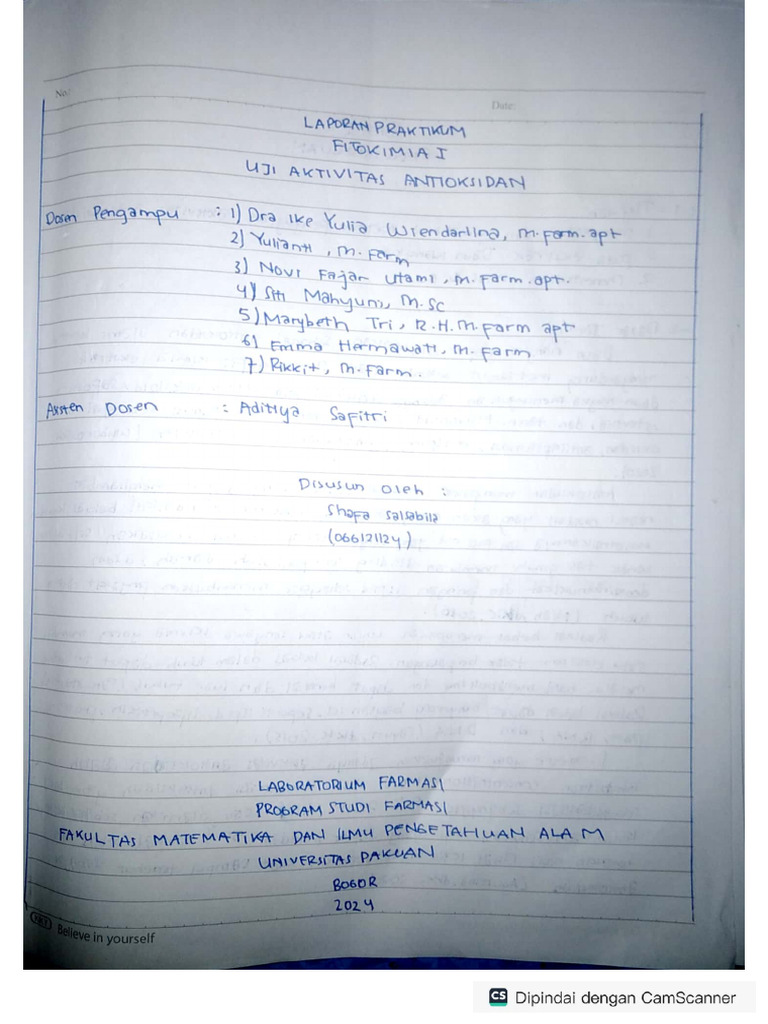 No:
Date:
LAPORAN PRAKTIKUM
FITOKIMIA I
UJI AKTIVITAS ANTIOKSIDAN
Dosen Pengampu : 1) Dra Ike Yulia Wiendarlina, M.Farm.apt
2) Yulianti, M.Farm
3) Novi Fajar Utami, M.Farm.apt.
4) Siti Mahyuni, M.Sc
5) Marybeth Tri, R.H.M.Farm apt
6) Emma Hermawati, M.Farm
7) Rikkit, M.Farm.
Asisten Dosen : Aditiya Safitri
Disusun oleh :
Shafa Salsabila
(066121124)
LABORATORIUM FARMASI
PROGRAM STUDI FARMASI
FAKULTAS MATEMATIKA DAN ILMU PENGETAHUAN ALAM
UNIVERSITAS PAKUAN
BOGOR
2024
Believe in yourself
CS Dipindai dengan CamScanner